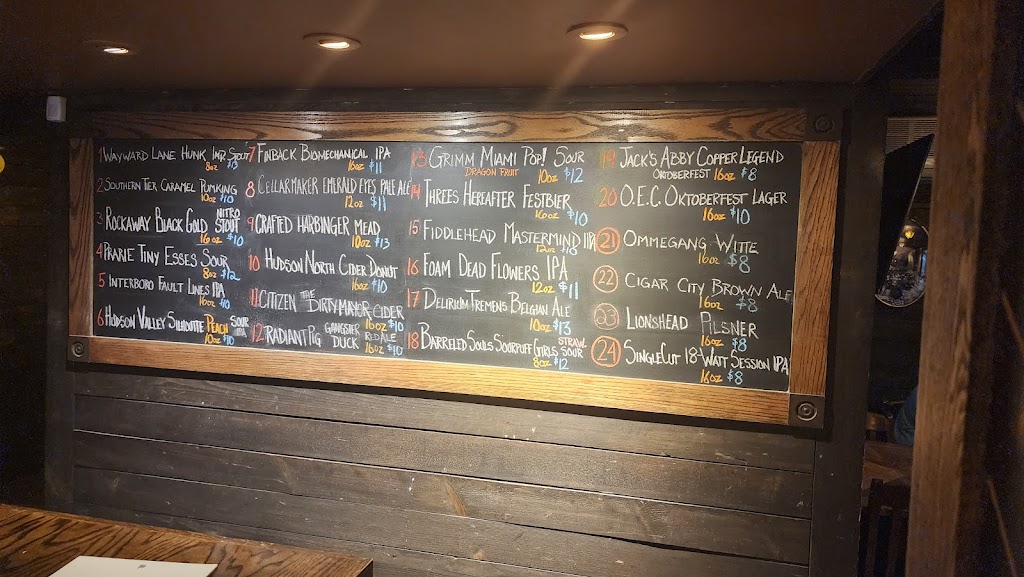 1 WAYWARD LANE HUNK IMP. STOUT
8oz $13
2 SOUTHERN TIER CARAMEL PUMKING
10oz $10
3 ROCKAWAY BLACK GOLD NITRO STOUT
16oz $10
4 PRARIE TINY ESSES SOUR
8oz $12
5 INTERBORO FAULT LINES IPA
16oz $10
6 HUDSON VALLEY SILHOUTTE PEACH SOUR IPA
10oz $10
7 FINBACK BIOMECHANICAL IPA
16oz $11
8 CELLARMAKER EMERALD EYES PALE ALE
12oz $11
9 CRAFTED HARBINGER MEAD
10oz $13
10 HUDSON NORTH CIDER DONUT
16oz $10
11 CITIZEN THE DIRTY MAYOR CIDER
16oz $10
12 RADIANT PIG GANGSTER DUCK RED ALE
16oz $10
13 GRIMM MIAMI POP! SOUR
DRAGON FRUIT 10oz $12
14 THREES HEREAFTER FESTBIER
16oz $10
15 FIDDLEHEAD MASTERMIND IPA
12oz $10
16 FOAM DEAD FLOWERS IPA
12oz $11
17 DELIRIUM TREMENS BELGIAN ALE
10oz $13
18 BARRELED SOULS SOURPUFF GIRLS STRAW. SOUR
8oz $12
19 JACK'S ABBY COPPER LEGEND
OKTOBERFEST 16oz $8
20 O.E.C. OKTOBERFEST LAGER
16oz $10
21 OMMEGANG WITTE
16oz $8
22 CIGAR CITY BROWN ALE
16oz $8
23 LIONSHEAD PILSNER
16oz $8
24 SINGLECUT 18-WATT SESSION IPA
16oz $8